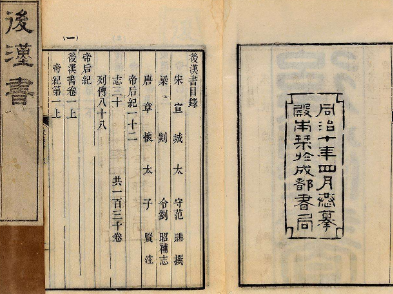 同治十年四月恭摹
殿本栞於成都書局
後漢書目錄
宋宣城太守范曄撰
梁剡令劉昭補志
唐章懷太子賢注
帝后紀一十二
志三十
共一百三十卷
列傳八十八
後漢書卷一上
帝紀第一上
(一)
後漢書